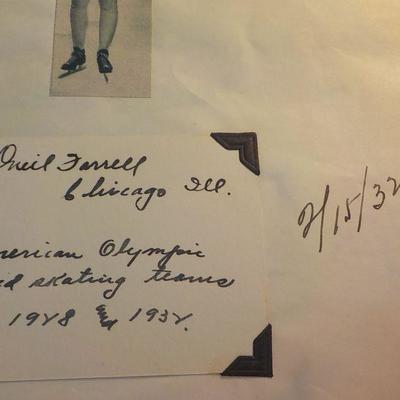 O'Neil Farrell
Chicago Ill.
merican Olympic
ed skating teams
1928 and 1932.
2/15/32